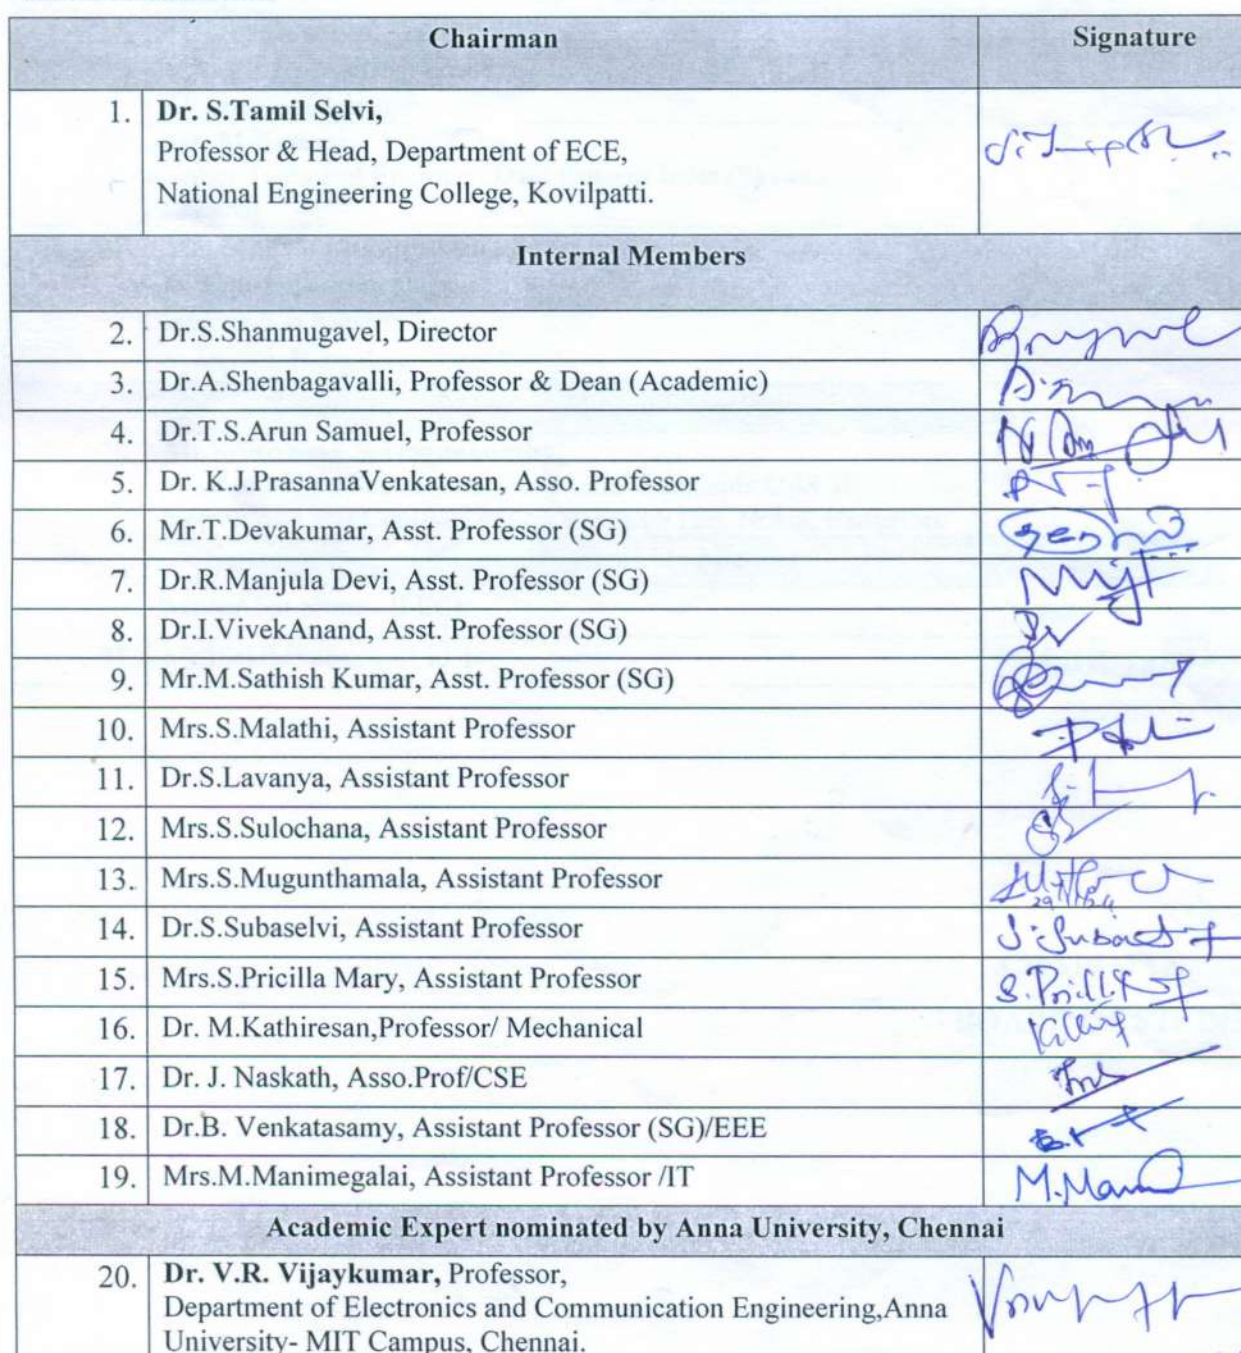 Chairman Signature
1. Dr. S.Tamil Selvi,
Professor & Head, Department of ECE,
National Engineering College, Kovilpatti.
Internal Members
2. Dr.S.Shanmugavel, Director
3. Dr.A.Shenbagavalli, Professor & Dean (Academic)
4. Dr.T.S.Arun Samuel, Professor
5. Dr. K.J.PrasannaVenkatesan, Asso. Professor
6. Mr.T.Devakumar, Asst. Professor (SG)
7. Dr.R.Manjula Devi, Asst. Professor (SG)
8. Dr.I.VivekAnand, Asst. Professor (SG)
9. Mr.M.Sathish Kumar, Asst. Professor (SG)
10. Mrs.S.Malathi, Assistant Professor
11. Dr.S.Lavanya, Assistant Professor
12. Mrs.S.Sulochana, Assistant Professor
13. Mrs.S.Mugunthamala, Assistant Professor
14. Dr.S.Subaselvi, Assistant Professor
15. Mrs.S.Pricilla Mary, Assistant Professor
16. Dr. M.Kathiresan,Professor/ Mechanical
17. Dr. J. Naskath, Asso.Prof/CSE
18. Dr.B. Venkatasamy, Assistant Professor (SG)/EEE
19. Mrs.M.Manimegalai, Assistant Professor /IT
Academic Expert nominated by Anna University, Chennai
20. Dr. V.R. Vijaykumar, Professor,
Department of Electronics and Communication Engineering,Anna
University- MIT Campus, Chennai.